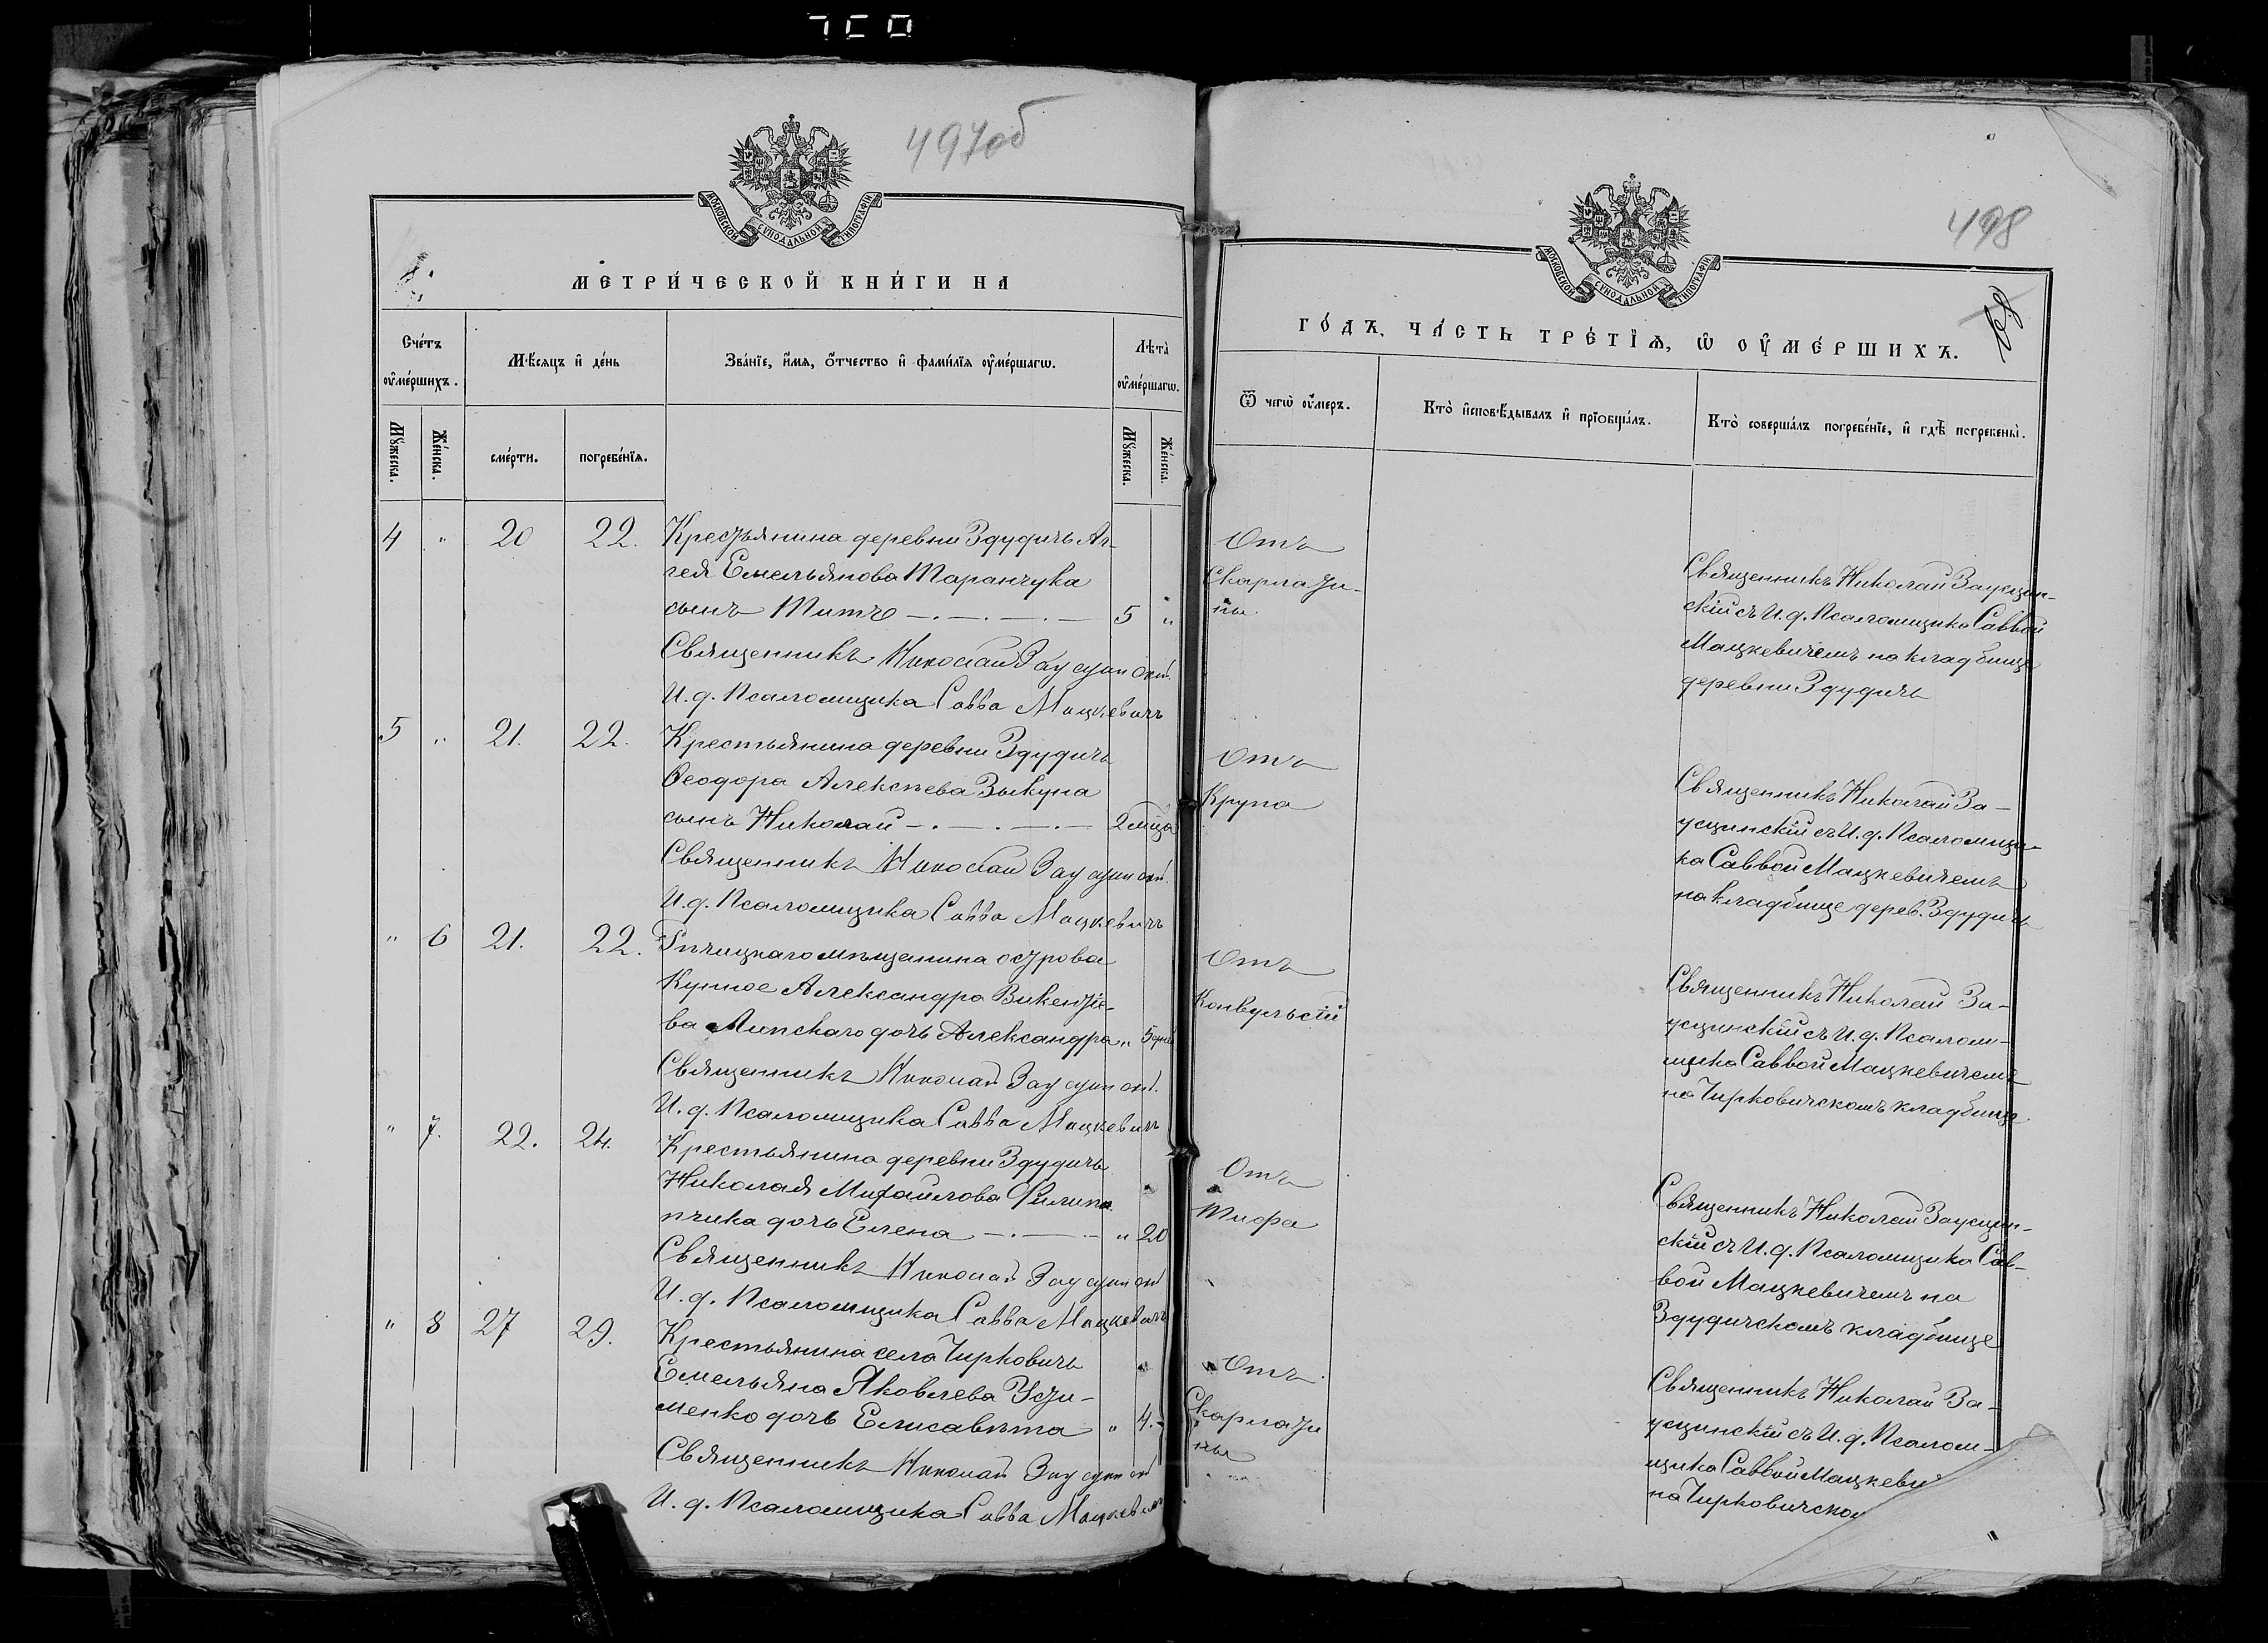 497об
МОСКОВСКОЙ СУНОДАЛЬНОЙ ТИПОГРАФІИ
МЕТРИ́ЧЕСКОЙ КНИ́ГИ НА
Сче́тъ ᲂу҆ме́ршихъ.
Мѣ́сяцъ и҆ де́нь
Зва́нїе, и҆́мѧ, ѻ҆́тчество и҆ фами́лїѧ ᲂу҆ме́ршагѡ.
Лѣ́та ᲂу҆ме́ршагѡ.
Мꙋ́жеска.
Же́нска.
сме́рти.
погребе́нїѧ.
Мꙋ́жеска.
Же́нска.
4 " 20 22. Крестьянина деревни Здудичъ Аг-
гея Емельянова Таранчука
сынъ Титъ 5 "
Священникъ Николай Заусцинскій
И. д. Псаломщика Савва Мацкевичъ
5 " 21. 22. Крестьянина деревни Здудичъ
Ѳеодора Алексѣева Зыкуна
сынъ Николай 2 мѣца
Священникъ Николай Заусцинскій
И. д. Псаломщика Савва Мацкевичъ
" 6 21. 22. Рѣчицкаго мѣщанина острова
Купное Александра Викентіе-
ва Липскаго дочь Александра " 5 дній
Священникъ Николай Заусцинскій
И. д. Псаломщика Савва Мацкевичъ
" 7. 22. 24. Крестьянина деревни Здудичъ
Николая Михайлова Филип
пчика дочь Елена " 20
Священникъ Николай Заусцинскій
И. д. Псаломщика Савва Мацкевичъ
" 8 27 29. Крестьянина села Чирковичъ
Емельяна Яковлева Усти-
менко дочь Елисавета " 4.
Священникъ Николай Заусцинскій
И. д. Псаломщика Савва Мацкевичъ
498
МОСКОВСКОЙ СУНОДАЛЬНОЙ ТИПОГРАФІИ
ГО́ДЪ. ЧА́СТЬ ТРЕ́ТЇѦ, Ѡ҆ ОУ҆МЕ́РШИХЪ.
Ѿ чегѡ̀ ᲂу҆́меръ.
Кто̀ и҆сповѣ́дывалъ и҆ прїѡбща́лъ.
Кто̀ соверша́лъ погребе́нїе, и҆ гдѣ̀ погребены̀.
Отъ
Скарлати-
ны
Священникъ Николай Заусцин-
скій съ И. д. Псаломщика Саввой
Мацкевичемъ на кладбище
деревни Здудичъ
Отъ
Крупа
Священникъ Николай За-
усцинскій съ И. д. Псаломщи-
ка Саввой Мацкевичемъ
на кладбище дерев. Здудичъ
Отъ
Конвульсій
Священникъ Николай За-
усцинскій съ И. д. Псалом-
щика Саввой Мацкевичемъ
на Чирковичскомъ кладбище
Отъ
Тифа
Священникъ Николай Заусцин-
скій съ И. д. Псаломщика Сав-
вой Мацкевичемъ на
Здудичскомъ кладбище
Отъ
Скарлати
ны
Священникъ Николай За-
усцинскій съ И. д. Псалом-
щика Саввой Мацкеви
на Чирковичско